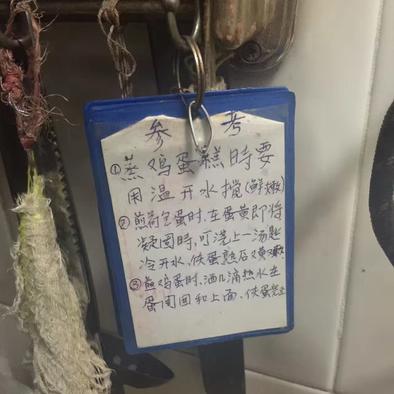 参考
①蒸鸡蛋糕時要
用温开水搅(鲜嫩)
②煎荷包蛋时,在蛋黄即将
凝固時,可浇上一汤匙
冷开水,使蛋熟后又黄又嫩
③煎鸡蛋时,洒几滴热水在
蛋周围和上面,使蛋完